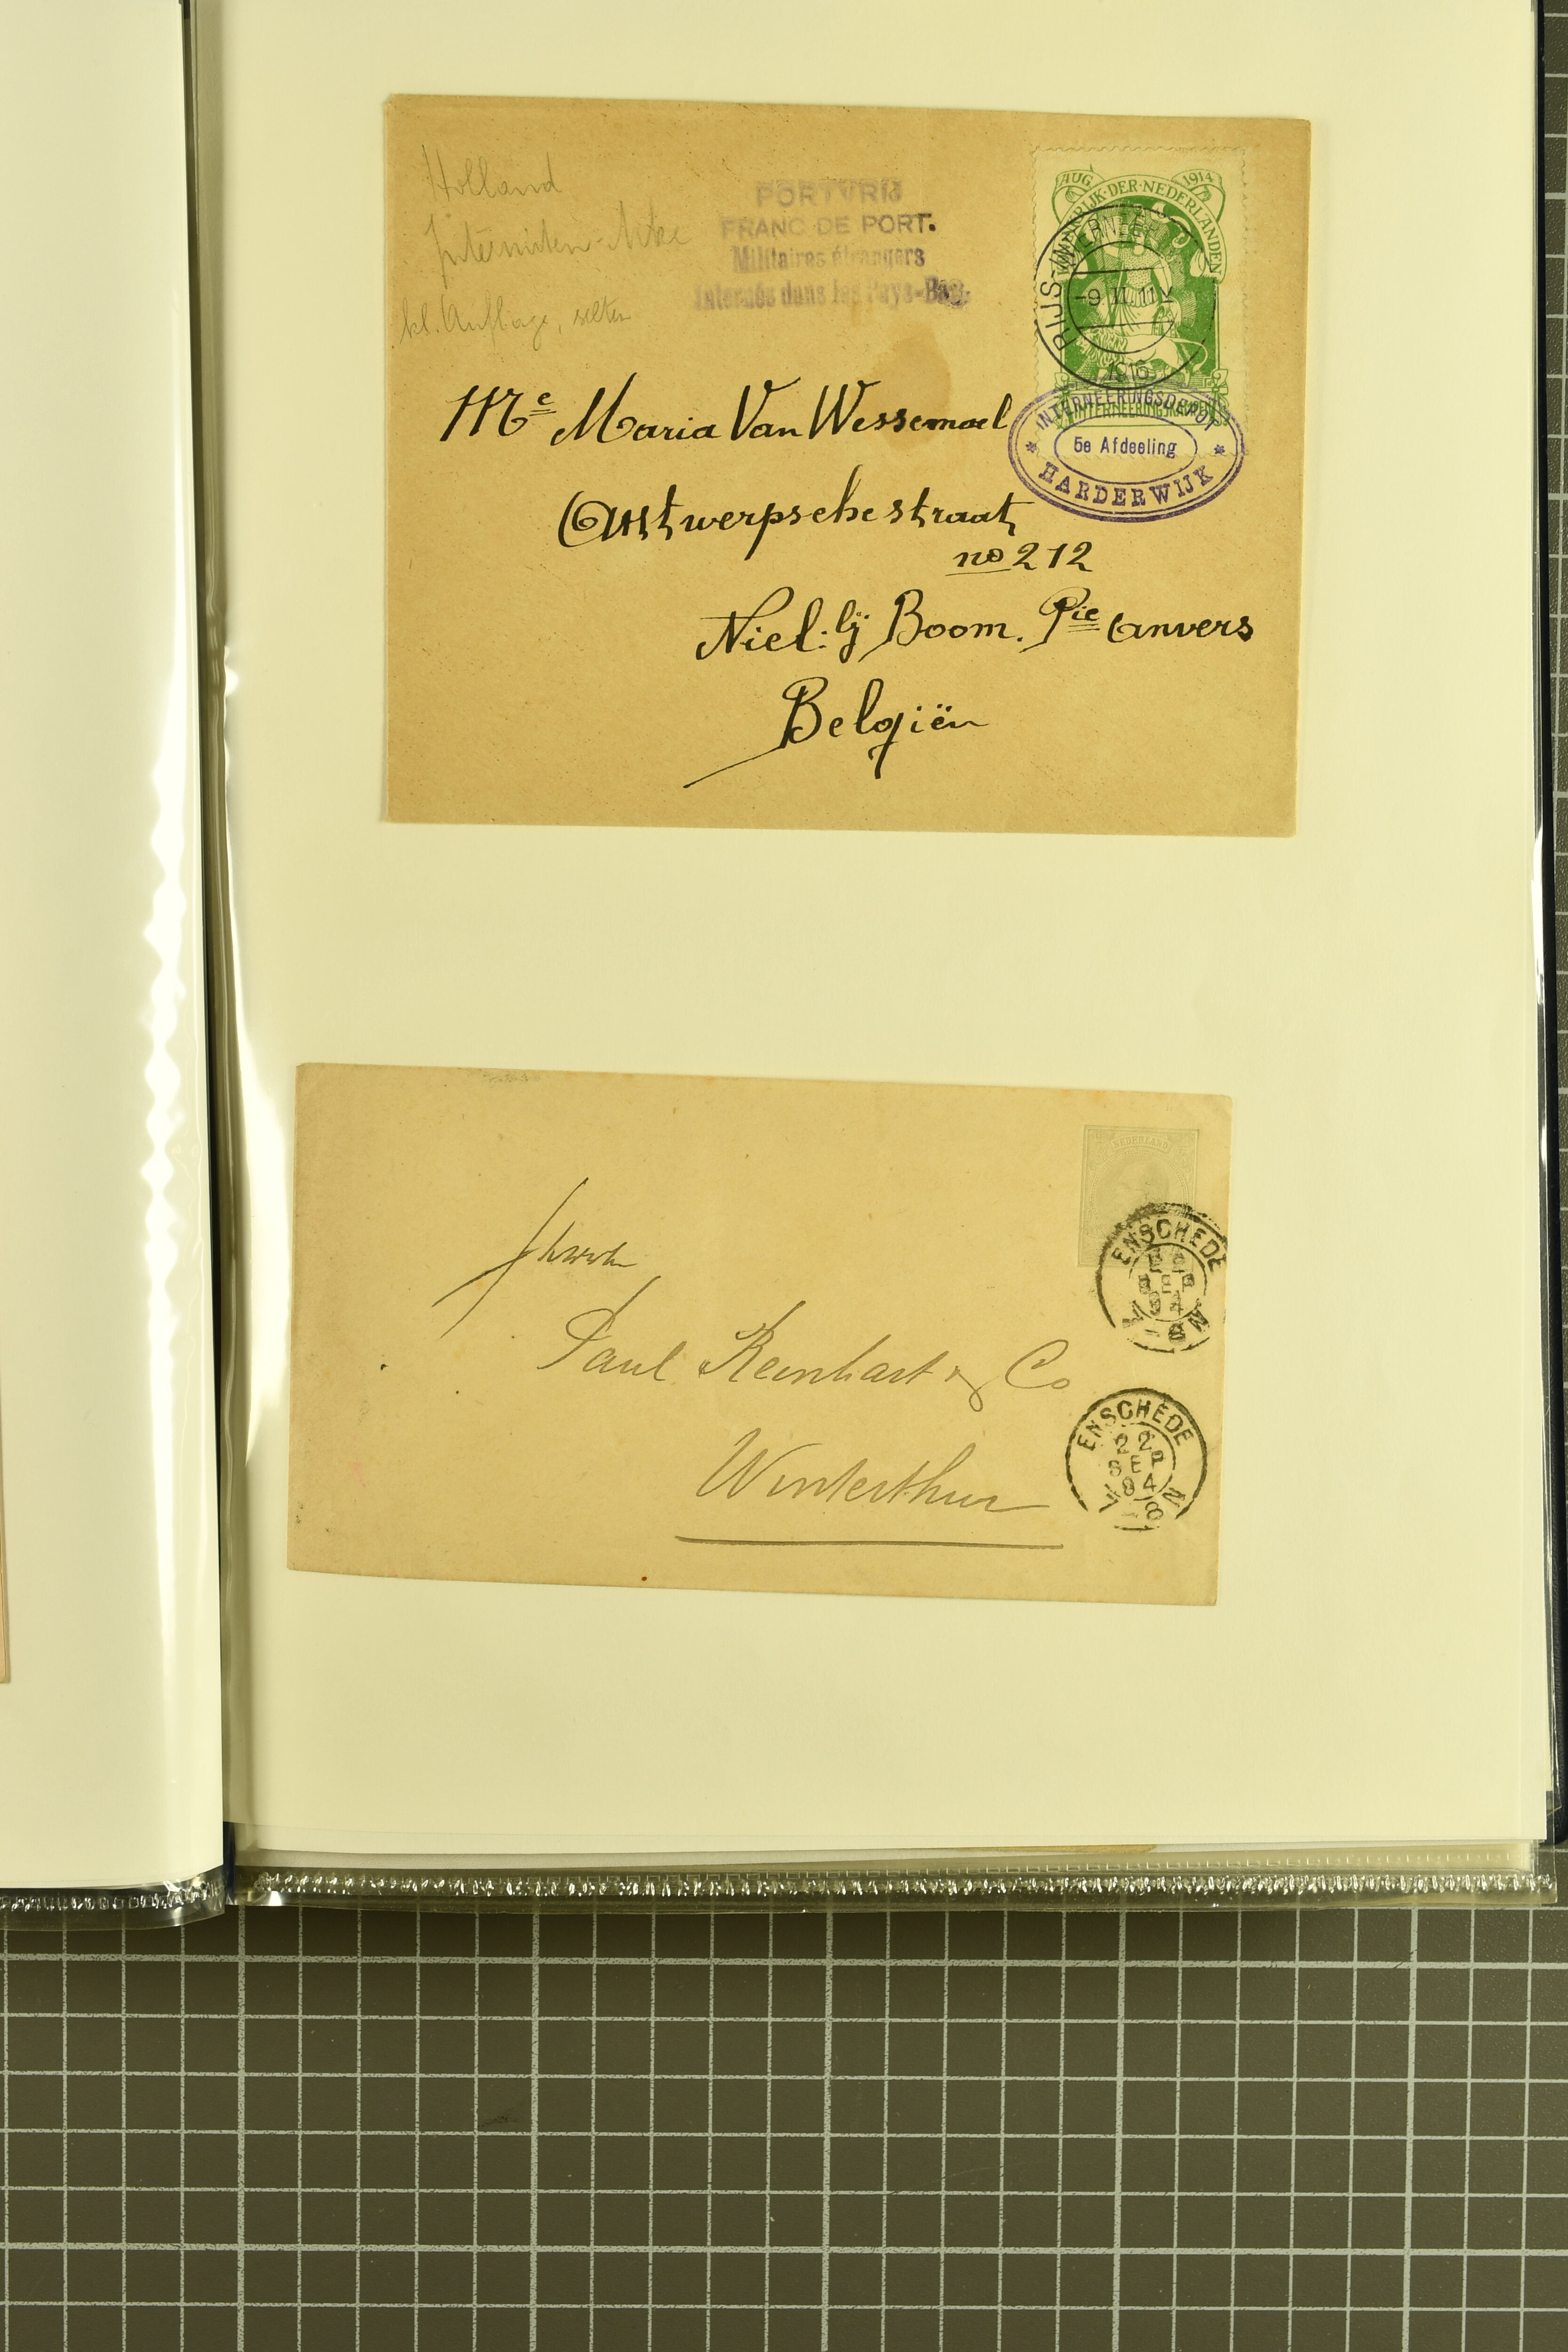 Holland
Internirten-Marke
kl. Auflage, selten
PORTVRIJ
FRANC DE PORT.
Militaires étrangers
Internés dans les Pays-Bas.
AUG 1914
KONINKRIJK·DER·NEDERLANDEN
RIJS- INTERNEER
-9 II 11V
1916
INTERNEERINGSKAMP
INTERNEERINGSDEPOT
5e Afdeeling
HARDERWIJK
Me Maria Van Wessemael
Antwerpschestraat
no 212
Niel: bij Boom. Pie Anvers
Belgiën
NEDERLAND
ENSCHEDE
22
SEP
84
7-8N
Paul Reinhart & Co
Winterthur
ENSCHEDE
22
SEP
84
7-8N